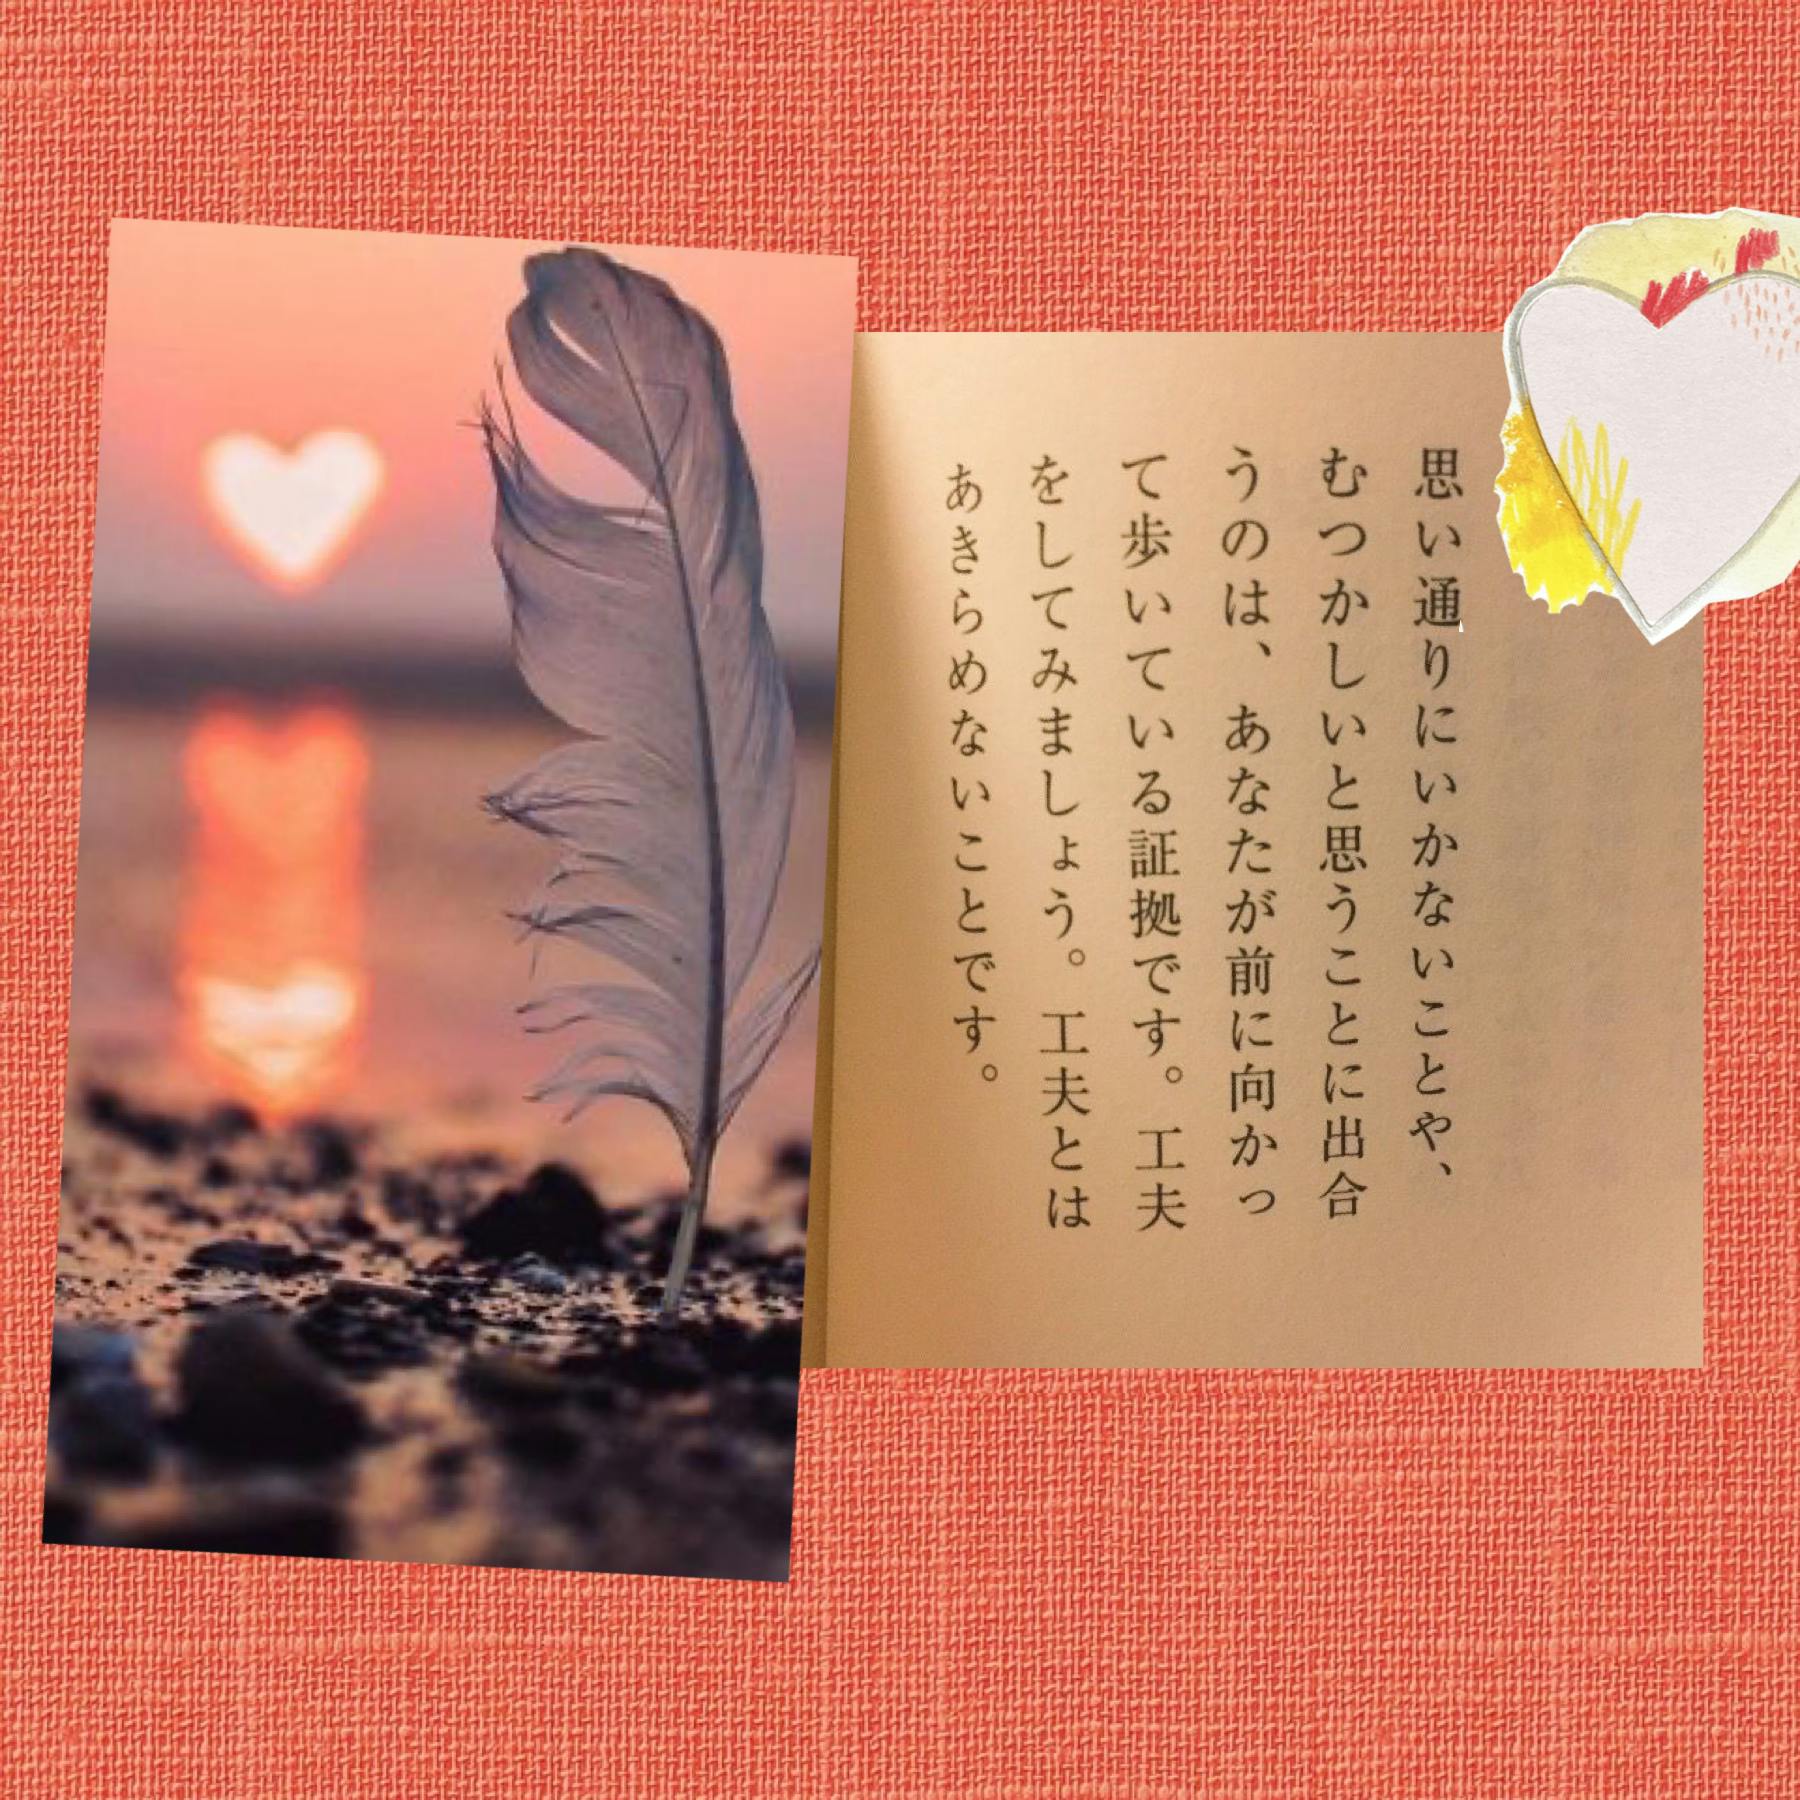 思い通りにいかないことや、
むつかしいと思うことに出合
うのは、あなたが前に向かっ
て歩いている証拠です。工夫
をしてみましょう。工夫とは
あきらめないことです。